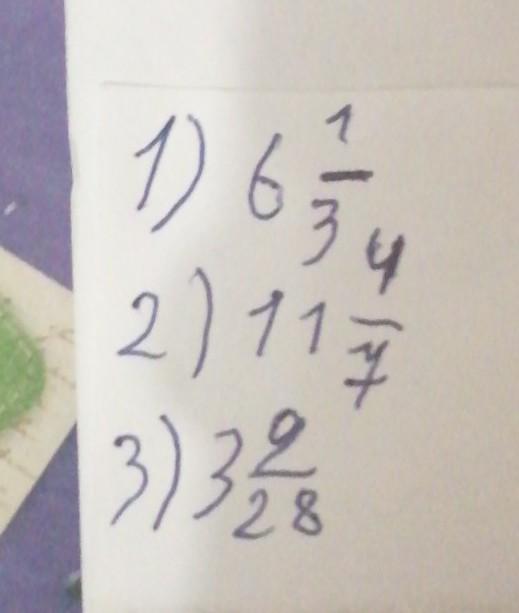 1) 6 1/3
2) 11 4/7
3) 3 9/28